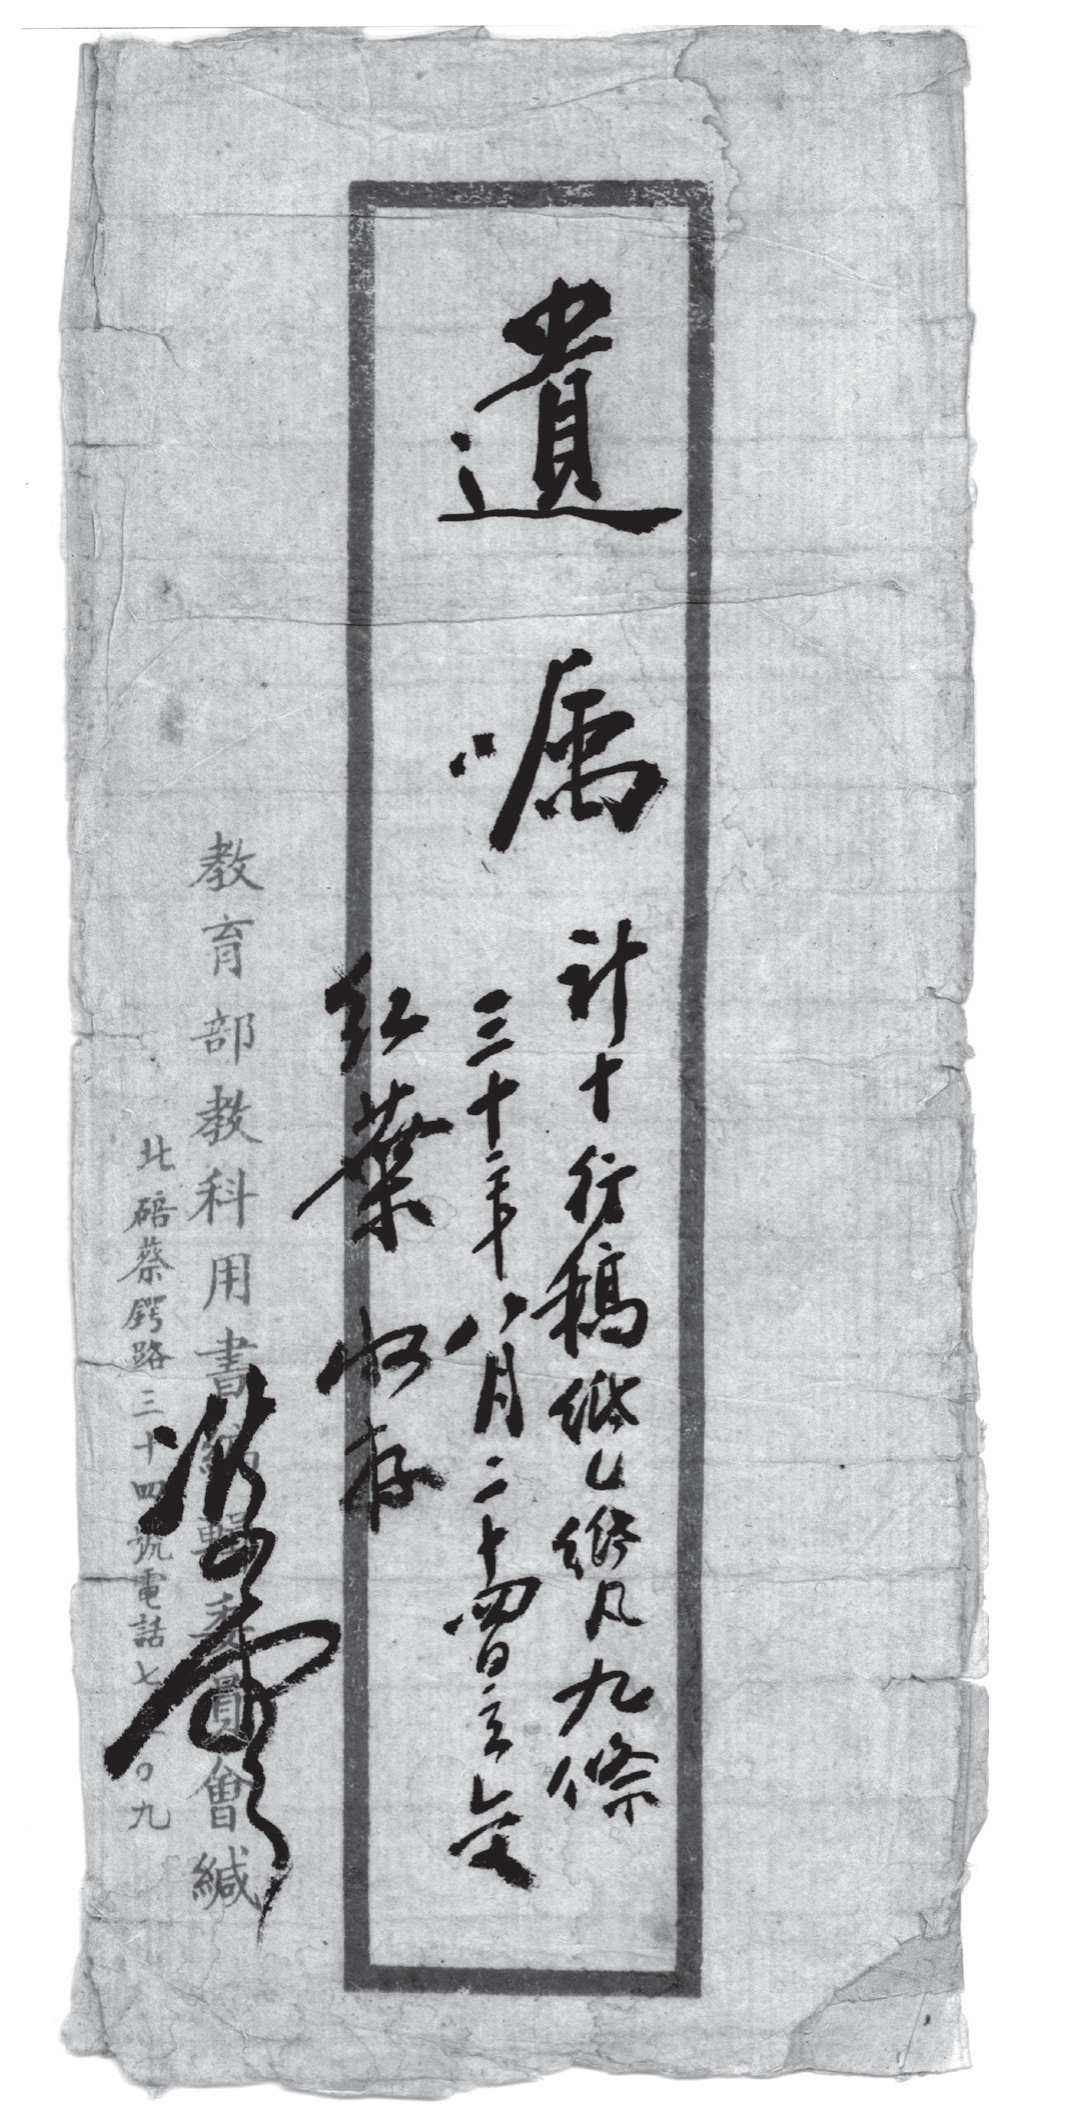 遺嘱
計十行稿紙七紙凡九條
三十二年八月二十四日立
紅葉 收存
教育部教科用書編輯委員會緘
北碚蔡鍔路三十四號電話七〇九